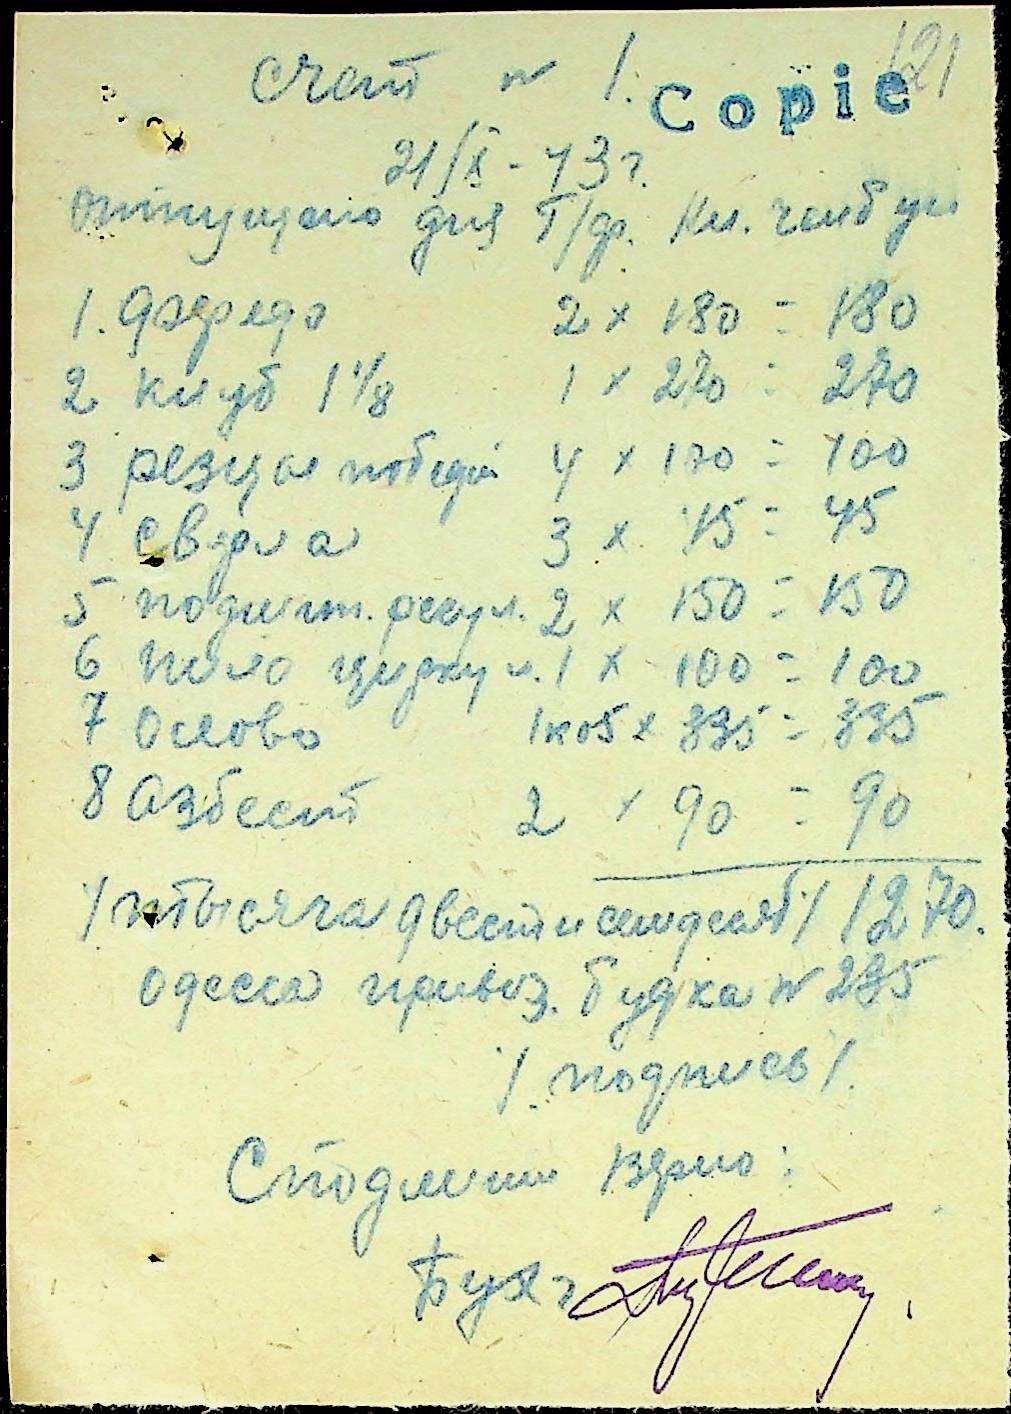 121
Счет № 1.
Copie
21/X - 43 г.
Отпущено для Т/ф. Км.
1. 2 × 180 = 180
2 Клуб 1 1/8 1 × 270 = 270
3 резцы победи 4 × 100 = 400
4 Сверла 3 × 15 = 45
5 2 × 150 = 150
6 Пило циркул. 1 × 100 = 100
7 Олово 1 × 335 = 335
8 Азбест 2 × 90 = 90
/тысяча двести семдесят/ 1270.
Одесса привоз. будка № 235
/.подпись/.
С подлин верно:
Бухг